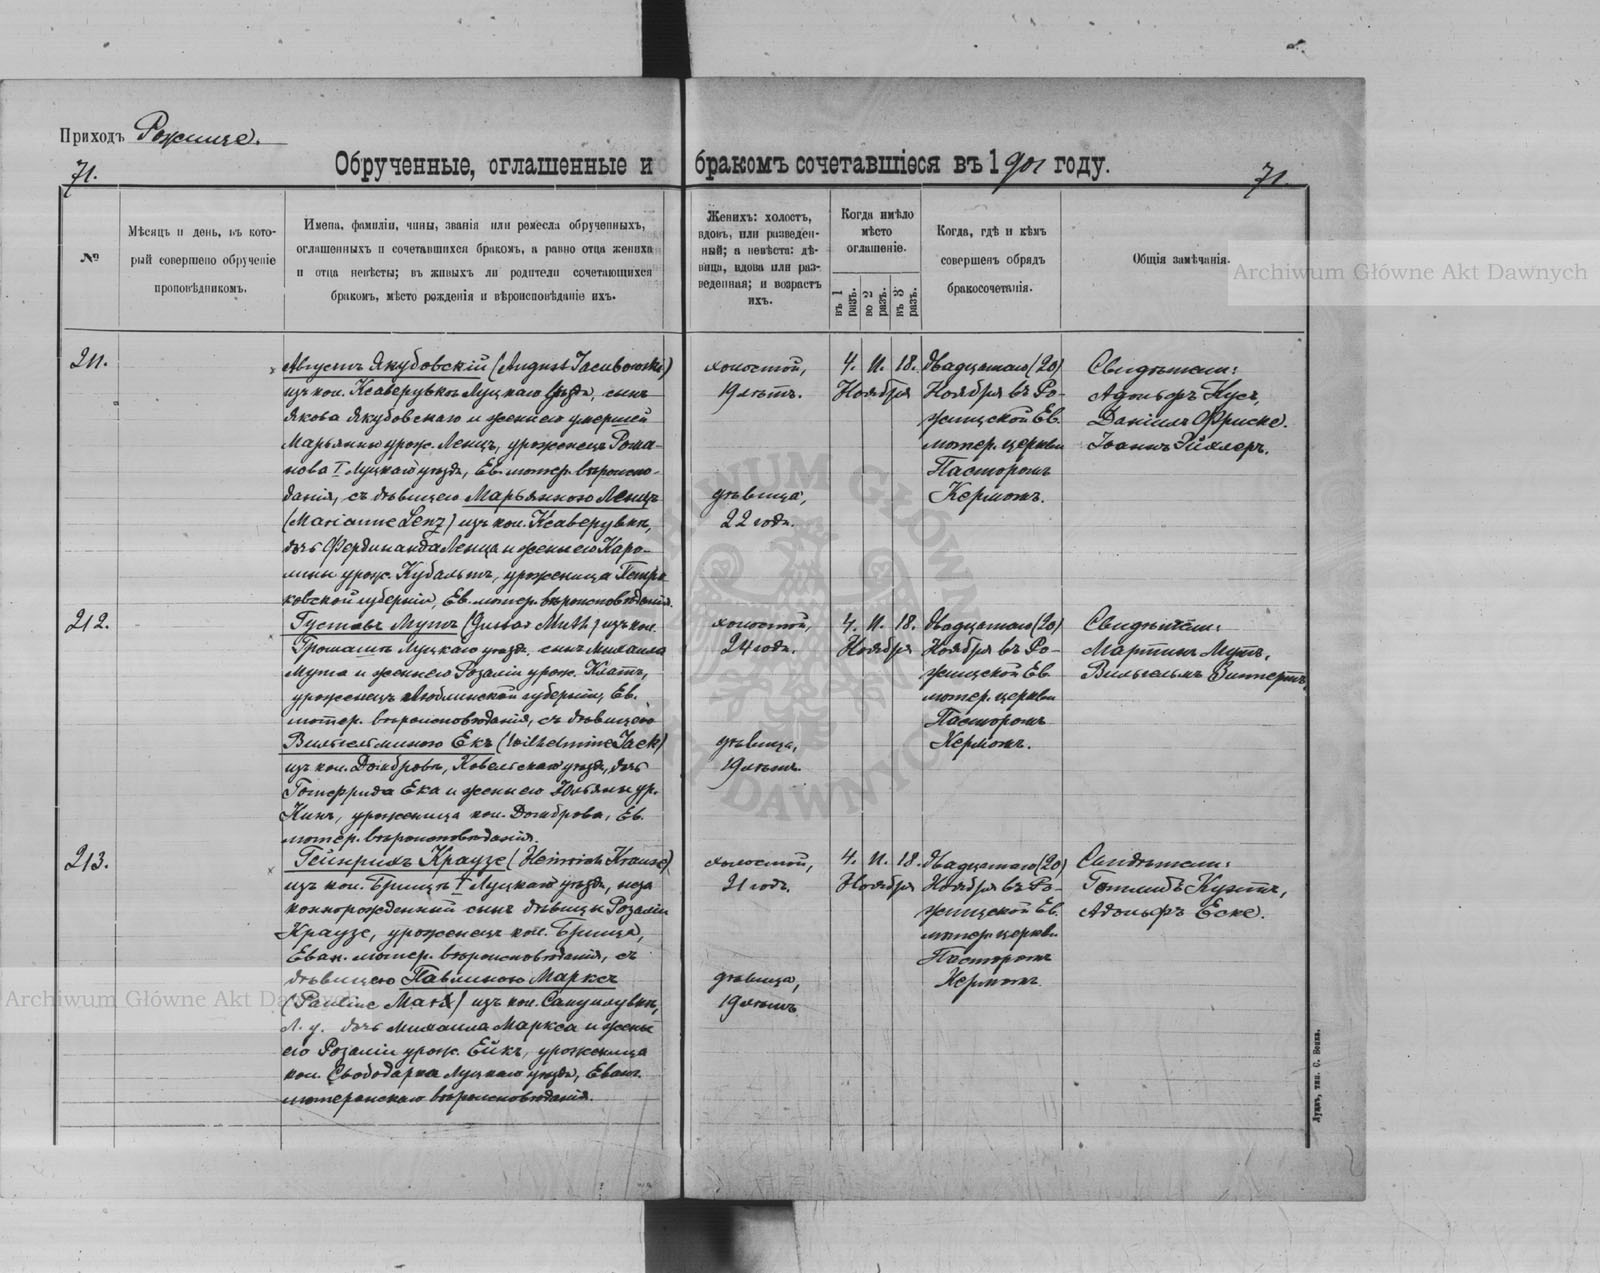 Приходъ Рожище.
71.
Обрученные, оглашенные и бракомъ сочетавшіеся въ 1901 году.
71.
№
Мѣсяцъ и день, въ кото-
рый совершено обрученіе
проповѣдникомъ.
Имена, фамиліи, чины, званія или ремесла обрученныхъ,
оглашенныхъ и сочетавшихся бракомъ, а равно отца жениха
и отца невѣсты; въ живыхъ ли родители сочетающихся
бракомъ, мѣсто рожденія и вѣроисповѣданіе ихъ.
Женихъ: холостъ,
вдовъ, или разведен-
ный; а невѣста: дѣ-
вица, вдова или раз-
веденная; и возрастъ
ихъ.
Когда имѣло
мѣсто
оглашеніе.
въ 1 разъ.
во 2 разъ.
въ 3 разъ.
Когда, гдѣ и кѣмъ
совершенъ обрядъ
бракосочетанія.
Общія замѣчанія.
Archiwum Główne Akt Dawnych
211.
Августъ Якубовскій (August Jacubowski)
изъ кол. Ксаверувкъ Луцкаго уѣзда, сынъ
Якова Якубовскаго и жены его умершей
Марьянны урож. Ленцъ, уроженецъ Рома-
нова I Луцкаго уѣзда, Ев. лютер. вѣроиспо-
данія, съ дѣвицею Марьянною Ленцъ
(Marianne Lenz) изъ кол. Ксаверувки,
дочь Фердинанда Ленца и жены его Каро-
лины урож. Кубальтъ, уроженица Петро-
ковской губерніи, Ев. лютер. вѣроисповѣданія.
холостой,
19 лѣтъ.
дѣвица,
22 года.
4. 11. 18.
Ноября
Двадцатаго (20)
Ноября въ Ро-
жищской Ев.
лютер. церкви
Пасторомъ
Кермомъ.
Свидѣтели:
Адольфъ Кусъ,
Даніилъ Фриске.
Іоаннъ Эйхлеръ.
212.
Густавъ Мутъ (Gustav Muth) изъ кол.
Трошашъ Луцкаго уѣзда, сынъ Михаила
Мута и жены его Розаліи урож. Клатъ,
уроженецъ Люблинской губерніи, Ев.
лютер. вѣроисповѣданія, съ дѣвицею
Вильгельминою Екъ (Wilhelmine Jaek)
изъ кол. Домбровъ, Ковельскаго уѣзда, дочь
Готфрида Ека и жены его Юльяны ур.
Кинъ, уроженица кол. Домброва, Ев.
лютер. вѣроисповѣданія.
холостой,
24 года.
дѣвица,
19 лѣтъ.
4. 11. 18.
Ноября
Двадцатаго (20)
Ноября въ Ро-
жищской Ев.
лютер. церкви
Пасторомъ
Кермомъ.
Свидѣтели:
Мартинъ Мутъ,
Вильгельмъ
213.
Гейнрихъ Краузе (Heinrich Krause)
изъ кол. Брищъ I Луцкаго уѣзда, неза
коннорожденный сынъ дѣвицы Розаліи
Краузе, уроженецъ кол. Брища,
Еван. лютер. вѣроисповѣданія, съ
дѣвицею Павлиною Марксъ
(Pauline Marx) изъ кол. Самуилувки,
Л. у. дочь Михаила Маркса и жены
его Розаліи урож. Ейкъ, уроженица
кол. Свободарка Луцкаго уѣзда, Еван.
лютеранскаго вѣроисповѣданія.
холостой,
21 годъ.
дѣвица,
19 лѣтъ.
4. 11. 18.
Ноября
Двадцатаго (20)
Ноября въ Ро-
жищской Ев.
лютер. церкви
Пасторомъ
Кермомъ.
Свидѣтели:
Готлибъ
Адольфъ Еске.
Archiwum Główne Akt Dawnych
Луцкъ, тип. С. Бокка.
ARCHIWUM GŁÓWNE AKT DAWNYCH